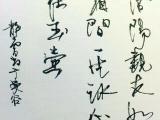 洛陽親友如
相問一片冰心
在玉壺